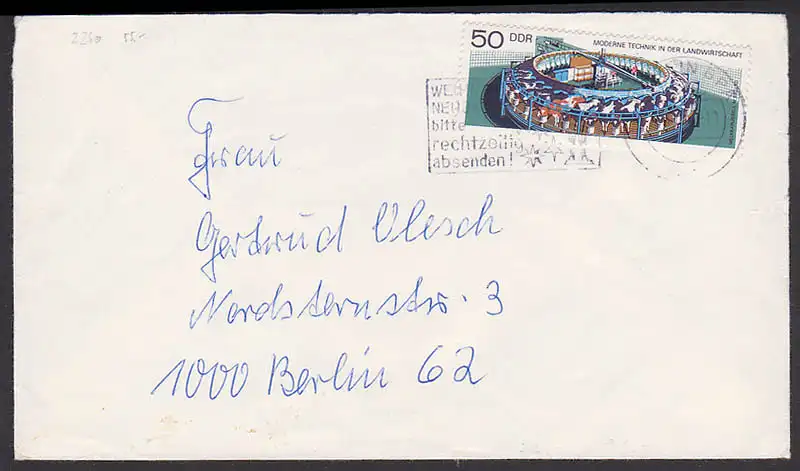 55.-
50 DDR MODERNE TECHNIK IN DER LANDWIRTSCHAFT
bitte
rechtzeitig
absenden!
Frau
Gertrud Olesch
Nordsternstr. 3
1000 Berlin 62